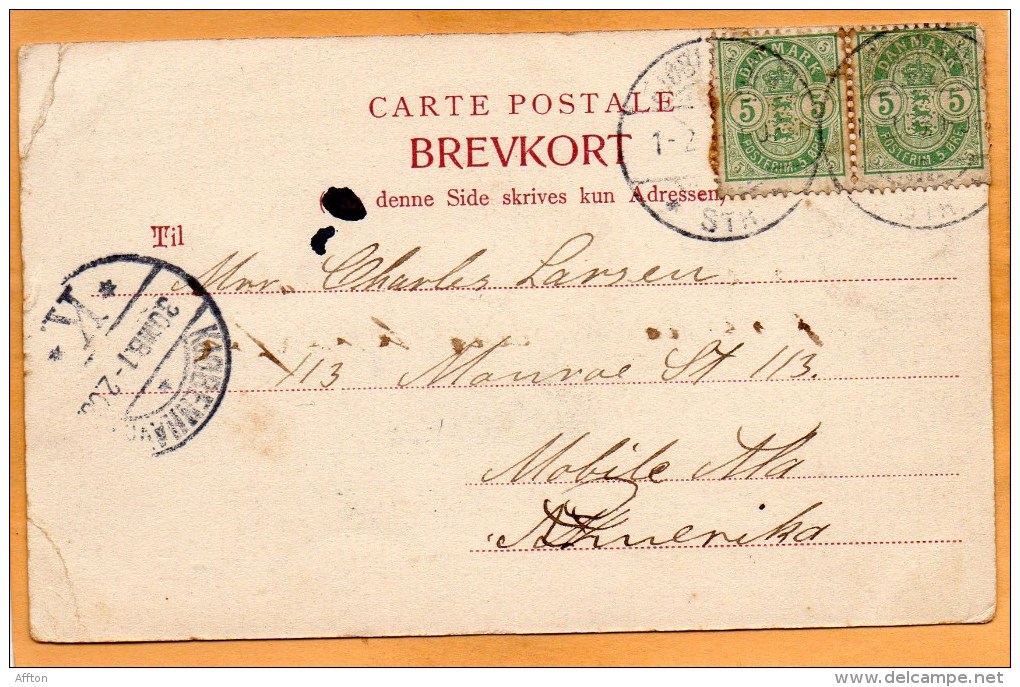 CARTE POSTALE
BREVKORT
denne Side skrives kun Adressen
Til
DANMARK
5 5
POSTFRIM. 5 ØRE
DANMARK
5 5
POSTFRIM. 5 ØRE
1-2
STA
STA
Mrr. Charles Larsen
113 Monroe St 113.
Mobile Ala
Amerika
K.
30 MR 1-2
KJØBENHAVN
Affton
www.delcampe.net